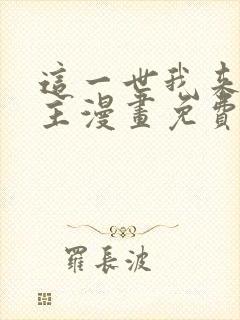 這一世我來
主漫畫免費
羅長波